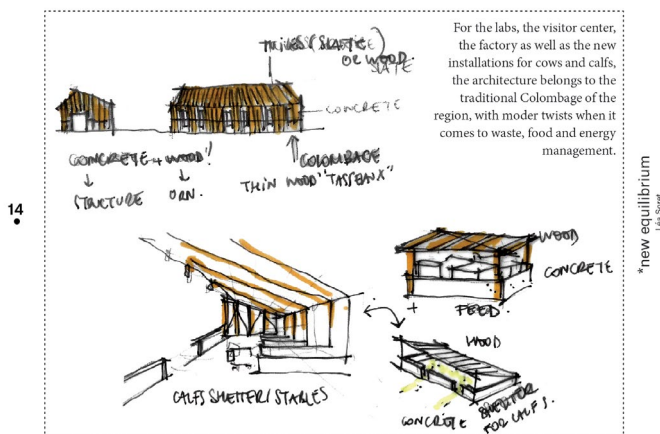 For the labs, the visitor center,
the factory as well as the new
installations for cows and calfs,
the architecture belongs to the
traditional Colombage of the
region, with moder twists when it
comes to waste, food and energy
management.
(SLATE)
OR WOOD.
SLATE
CONCRETE
CONCRETE + WOOD!
STRUCTURE
ORN.
COLOMBAGE
THIN WOOD "TASSEAUX"
14
*new equilibrium
WOOD
CONCRETE
+ FEED.
WOOD
CALFS SHELTER/STABLES
CONCRETE
SHELTER
FOR CALFS.